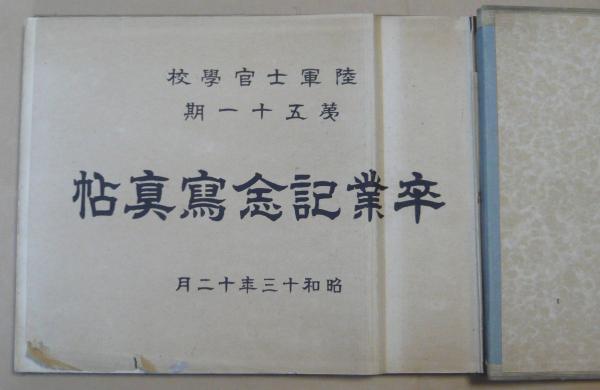 陸軍士官學校
第五十一期
卒業記念寫眞帖
昭和十三年十二月